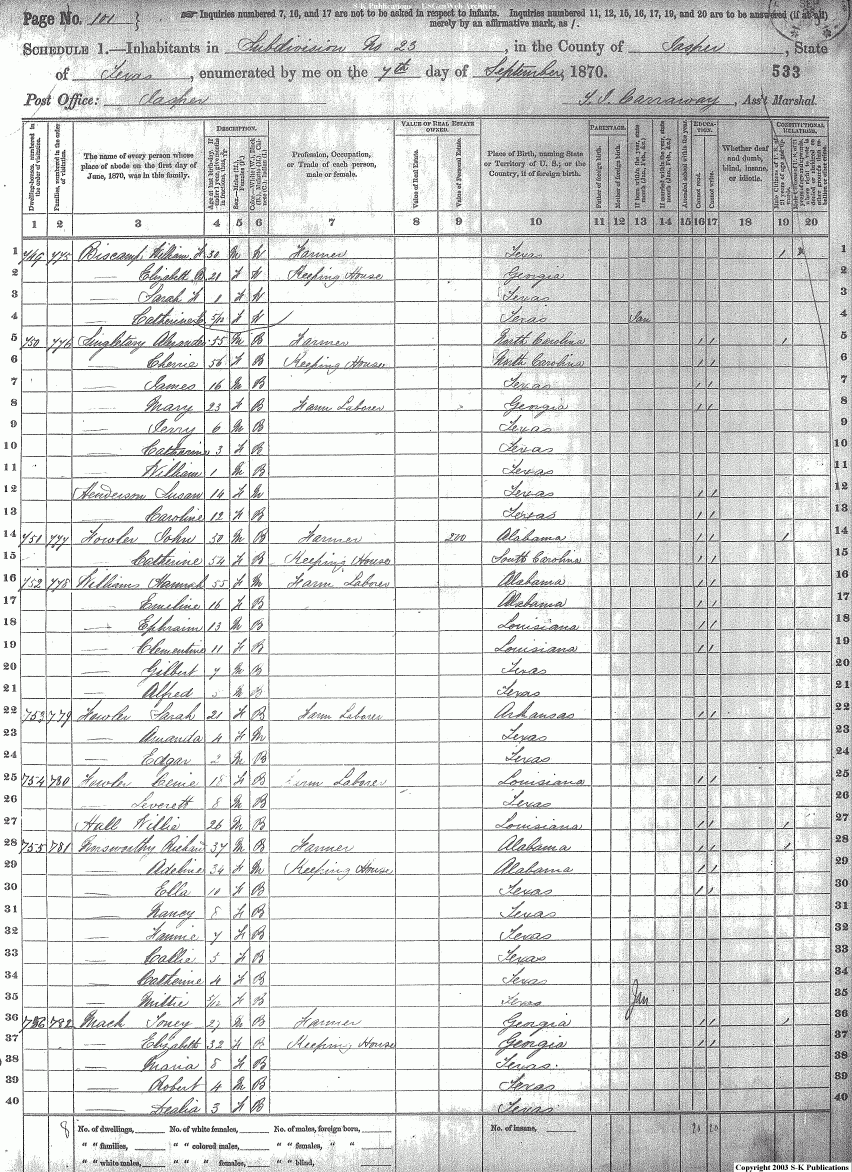 S-K Publications - USGenWeb Archives
Page No. 101
☞ Inquiries numbered 7, 16, and 17 are not to be asked in respect to infants. Inquiries numbered 11, 12, 15, 16, 17, 19, and 20 are to be answered (if at all) merely by an affirmative mark, as /.
SCHEDULE 1.—Inhabitants in Subdivision No 23, in the County of Jasper, State
of Texas, enumerated by me on the 7th day of September, 1870. 533
Post Office: Jasper T. J. Carraway, Ass't Marshal.
Dwelling-houses, numbered in the order of visitation.
Families, numbered in the order of visitation.
The name of every person whose place of abode on the first day of June, 1870, was in this family.
DESCRIPTION.
Profession, Occupation, or Trade of each person, male or female.
VALUE OF REAL ESTATE OWNED.
Value of Real Estate.
Value of Personal Estate.
Place of Birth, naming State or Territory of U. S.; or the Country, if of foreign birth.
PARENTAGE.
Father of foreign birth.
Mother of foreign birth.
Attended school within the year.
EDUCATION.
Cannot read.
Cannot write.
Whether deaf and dumb, blind, insane, or idiotic.
CONSTITUTIONAL RELATIONS.
1 2 3 4 5 6 7 8 9 10 11 12 13 14 15 16 17 18 19 20
1 775 Biscamp, William 30 M W Farmer Texas / 1
2 — Elizabeth 28 F W Keeping House Georgia 2
3 — Sarah F W Texas 3
4 — Catherine F W Texas Jan 4
5 750 776 Singletary Alexander 55 M B Farmer North Carolina / / / 5
6 — Cherria 56 F B Keeping House North Carolina / / 6
7 — James 16 M B Texas / / 7
8 — Mary 23 F B Farm Laborer Georgia / / 8
9 — Jerry 6 M B Texas 9
10 — Catharine 3 F B Texas 10
11 — William 1 M B Texas 11
12 Henderson Susan 14 F M Texas / / 12
13 — Caroline 12 F B Texas / / 13
14 751 777 Fowler John 50 M B Farmer 200 Alabama / / / 14
15 — Catherine 54 F B Keeping House South Carolina / / 15
16 752 778 Williams Hannah 55 F M Farm Laborer Alabama / / 16
17 — Emeline 16 F B Alabama / / 17
18 — Ephraim 13 M B Louisiana / / 18
19 — Clementine 11 F B Louisiana / / 19
20 — Gilbert 7 M B Texas 20
21 — Alfred M B Texas 21
22 753 779 Fowler Sarah 21 F B Farm Laborer Arkansas / / 22
23 — Amanda 4 F M Texas 23
24 — Edgar 2 M B Texas 24
25 754 780 Fowler 18 F B Farm Laborer Louisiana / / 25
26 — Leverett 8 M B Texas 26
27 Hall Willis 26 M B Louisiana / / / 27
28 755 781 37 M B Farmer Alabama / / / 28
29 — Adeline 34 F M Keeping House Alabama / / 29
30 — Ella 10 F B Texas / / 30
31 — Nancy 8 F B Texas 31
32 — Fannie 7 F B Texas 32
33 — Callie 5 F B Texas 33
34 — Catherine 4 F B Texas 34
35 — Mittie F B Texas Jan 35
36 756 782 Mack Toney 27 M B Farmer Georgia / / / 36
37 — Elizabeth 32 F B Keeping House Georgia / / 37
38 — Maria 8 F B Texas 38
39 — Robert 4 M B Texas 39
40 — 3 F B Texas 40
8 No. of dwellings, No. of white females, No. of males, foreign born, No. of insane, 20 20
" " families, " " colored males, " " females, " "
" " white males, " " " females, " " blind,
Copyright 2003 S-K Publications